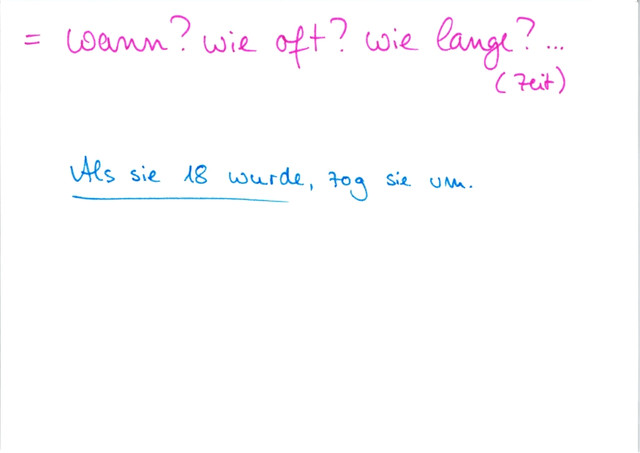 = wann? wie oft? wie lange? ...
(Zeit)
Als sie 18 wurde, zog sie um.